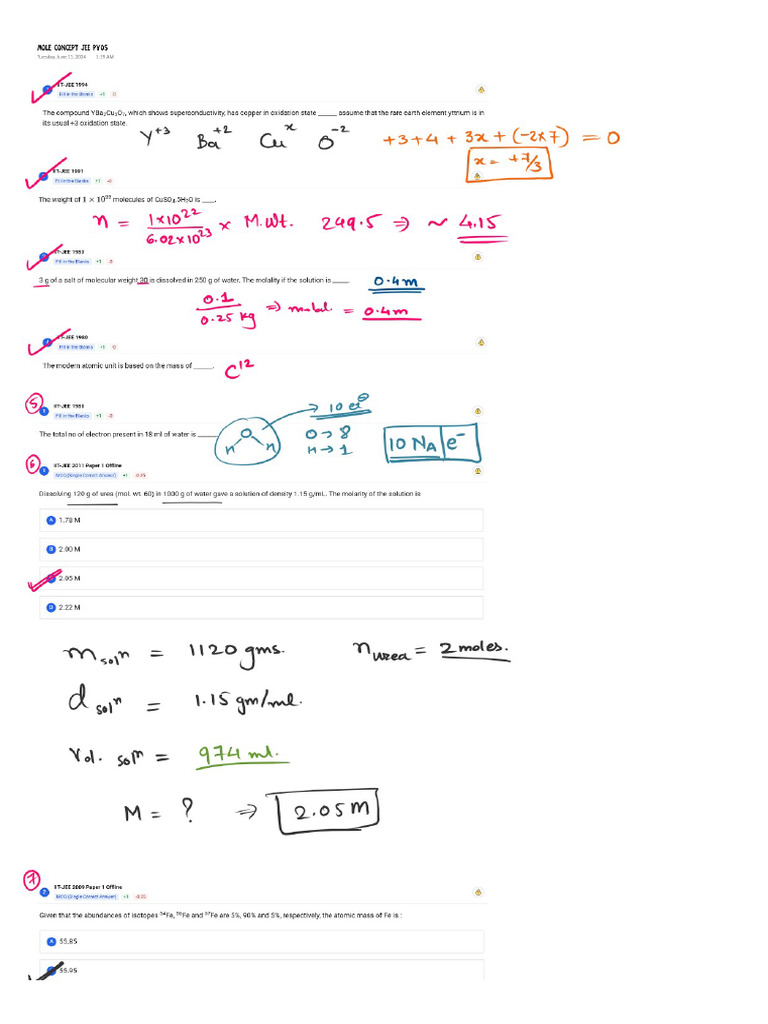 MOLE CONCEPT JEE PYQS
Tuesday, June 11, 2024 1:15 AM
IIT-JEE 1994
Fill in the Blanks +1 -0
The compound YBa₂Cu₃O₇, which shows superconductivity, has copper in oxidation state _____ assume that the rare earth element yttrium is in
its usual +3 oxidation state.
Y⁺³ Ba⁺² Cuˣ O⁻² +3+4+3x+(-2x7) = 0
x = +7/3
IIT-JEE 1991
Fill in the Blanks +1 -0
The weight of 1 × 10²² molecules of CuSO₄.5H₂O is ____.
n = 1x10²² / 6.02x10²³ x M.Wt. 249.5 ⇒ ~ 4.15
IIT-JEE 1983
Fill in the Blanks +1 -0
3 g of a salt of molecular weight 30 is dissolved in 250 g of water. The molality if the solution is _____
0.4m
0.1 / 0.25 kg ⇒ molal. = 0.4m
IIT-JEE 1980
Fill in the Blanks +1 -0
The modern atomic unit is based on the mass of _____.
C¹²
5
IIT-JEE 1981
Fill in the Blanks +1 -0
The total no of electron present in 18 ml of water is _____
O
H H
→ 10 e⊖
O → 8
H → 1
10 NA e⁻
6
IIT-JEE 2011 Paper 1 Offline
MCQ (Single Correct Answer) +1 -0.25
Dissolving 120 g of urea (mol. wt. 60) in 1000 g of water gave a solution of density 1.15 g/mL. The molarity of the solution is
A 1.78 M
B 2.00 M
2.05 M
D 2.22 M
m solⁿ = 1120 gms. n urea = 2 moles.
d solⁿ = 1.15 gm/ml.
Vol. solⁿ = 974 ml.
M = ? ⇒ 2.05 M
7
IIT-JEE 2009 Paper 1 Offline
MCQ (Single Correct Answer) +1 -0.25
Given that the abundances of isotopes ⁵⁴Fe, ⁵⁶Fe and ⁵⁷Fe are 5%, 90% and 5%, respectively, the atomic mass of Fe is :
A 55.85
55.95